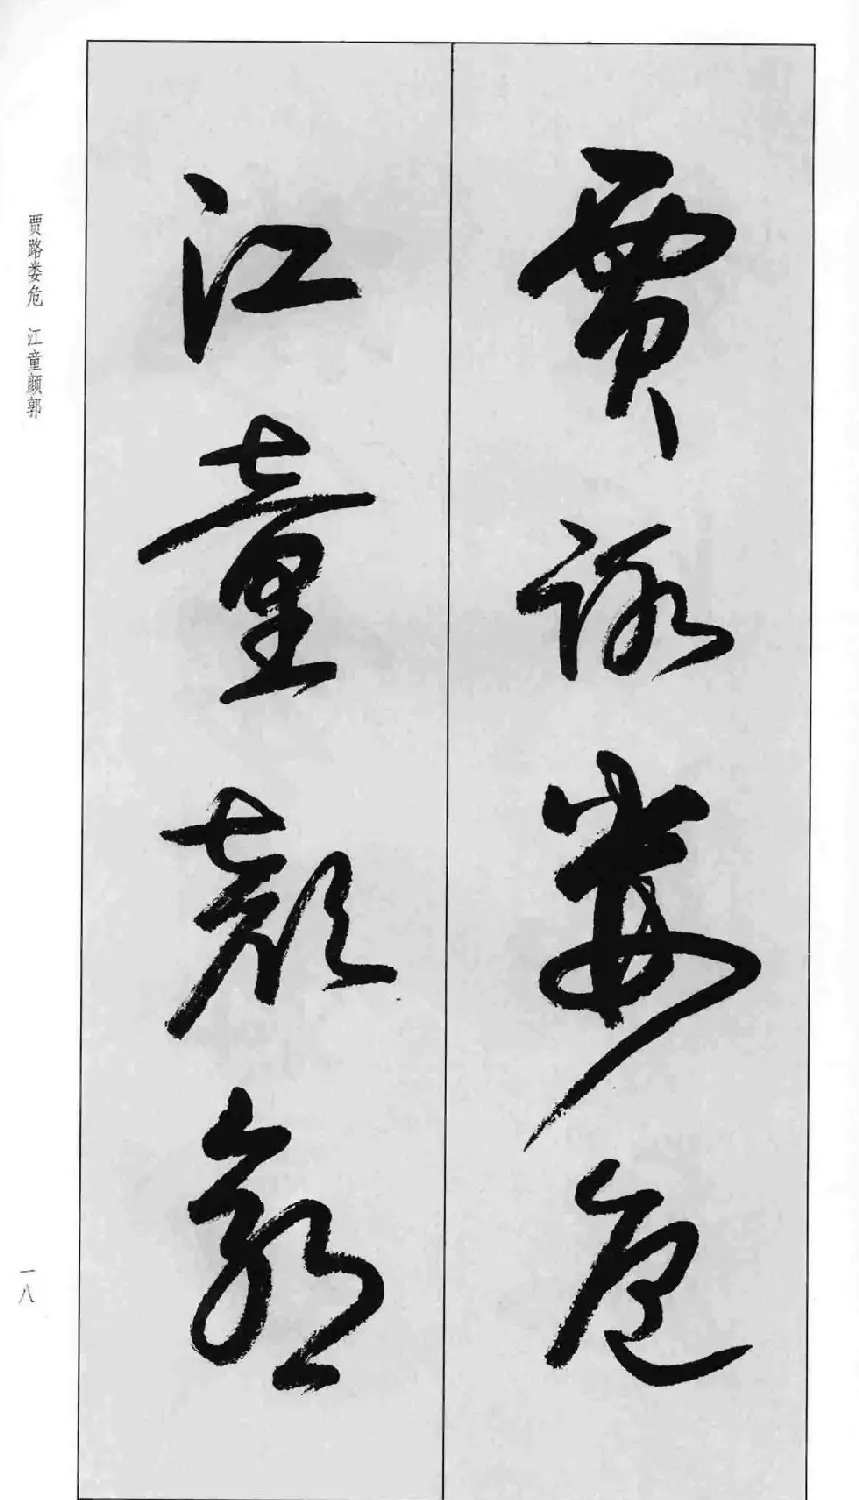 賈路婁危
江童顏郭
贾路娄危 江童颜郭
一八